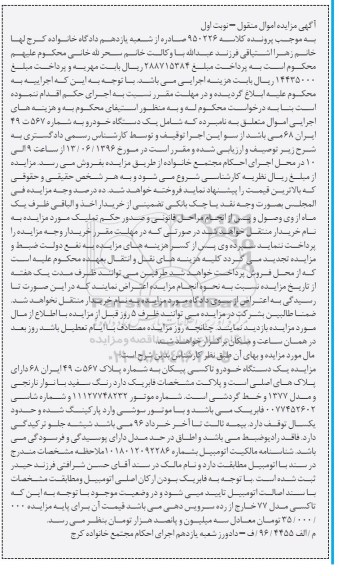 آگهی مزایده اموال منقول – نوبت اول
به موجب پرونده کلاسه ۹۵۰۲۲۶ صادره از شعبه یازدهم دادگاه خانواده کرج لها
خانم زهرا اشتیاقی فرزند عبدالله با وکالت خانم سحر لله خانی محکوم علیهم
محکوم است به پرداخت مبلغ ۲۸۸۷۱۵۳۸۴ ریال بابت مهریه و پرداخت مبلغ
۱۴۴۳۵۰۰۰ ریال بابت هزینه اجرایی می باشد. با توجه به این که اجراییه به
محکوم علیه ابلاغ گردیده و در مهلت مقرر نسبت به اجرای حکم اقدام ننموده
است بنا به درخواست محکوم له و به منظور استیفای محکوم به و هزینه های
اجرایی اموال متعلق به نامبرده که شامل یک دستگاه خودرو به شماره ۵۶۷ ت ۴۹
ایران ۶۸ می باشد از سوی این اجرا توقیف و توسط کارشناس رسمی دادگستری به
شرح زیر توصیف و ارزیابی شده و مقرر است در مورخ ۱۳۹۶/ ۰۶/ ۱۳ از ساعت ۹ الی
۱۰ در محل اجرای احکام مجتمع خانواده از طریق مزایده بفروش می رسد. مزایده
از مبلغ ریال نظریه کارشناسی شروع می شود و به هر شخص حقیقی و حقوقی
که بالاترین قیمت را پیشنهاد نماید فروخته خواهد شد. ده درصد وجه مزایده فی
المجلس بصورت وجه نقد یا چک بانکی تضمینی از خریدار اخذ و الباقی ظرف یک
ماه از وی وصول و پس از انجام مراحل قانونی و صدور حکم تملیک مورد مزایده به
نام خریدار منتقل خواهد شد. در صورتی که در مهلت مقرر خریدار وجه مزایده را
پرداخت ننماید سپرده وی پس از کسر هزینه های مزایده به نفع دولت ضبط و
مزایده تجدید می گردد کلیه هزینه های نقل و انتقال بعهده محکوم علیه است
که از محل فروش پرداخت خواهد شد. طرفین می توانند ظرف مدت یک هفته
از تاریخ مزایده نسبت به نحوه انجام مزایده اعتراض نمایند که در این صورت تا
رسیدگی به اعتراض از سوی دادگاه مورد مزایده به نام خریدار منتقل نخواهد شد.
ضمنا طالبین بشرکت در مزایده می توانند ظرف ۵ روز قبل از مزایده با اطلاع از مال
مورد مزایده بازدید نمایند. چنانچه روز مزایده مصادف با ایام تعطیل باشد روز بعد
در همان ساعت و مکان برگزار خواهد شد.
مال مورد مزایده و بهای آن طبق نظر کارشناس بدین شرح است:
مزایده یک دستگاه خودرو تاکسی پیکان به شماره پلاک ۵۶۷ ت ۴۹ ایران ۶۸ دارای
پلاک های اصلی است و پلاکت مشخصات فابریک دارد رنگ سفید با نوار نارنجی
و مدل ۱۳۷۷ و خط گردشی است. شماره موتور ۱۱۱۲۷۷۴۸۲۳۲ و شماره شاسی
۰۰۷۷۴۵۲۶۰۲ فابریک می باشد و با موتور سوشی وارد پارکینگ شده و حدود
یکسال توقف دارد. بیمه ثالث تا آخر خرداد ۹۶ می باشد شیشه جلو ترکیدگی
دارد. فاقد رادیو ضبط می باشد و اطاق در حد مدل دارای پوسیدگی و فرسودگی می
باشد. شناسنامه مالکیت اتومبیل بشماره ۱۰۱۸۰۱۲۰۹۲۲۸۶ ملاحظه مشخصات مندرج
در سند با اتومبیل مطابقت دارد و نام مالک در سند آقای حسن شرافتی فرزند حیدر
ثبت شده است. با توجه به فابریک بودن ارکان اصلی اتومبیل ومطابقت مشخصات
با سند اصالت اتومبیل تایید می شود و در وضعیت موجود با توجه به این که
تاکسی مدل ۷۷ خارج از رده سرویس دهی می باشد قیمت آن برای پایه مزایده ۰۰۰
/۰۰۰ /۳۵ تومان معادل سه میلیون و پانصد هزار تومان بنظر می رسد.
م / الف ۹۶/۴۴۵۵ / ف – دادورز شعبه یازدهم اجرای احکام مجتمع خانواده کرج